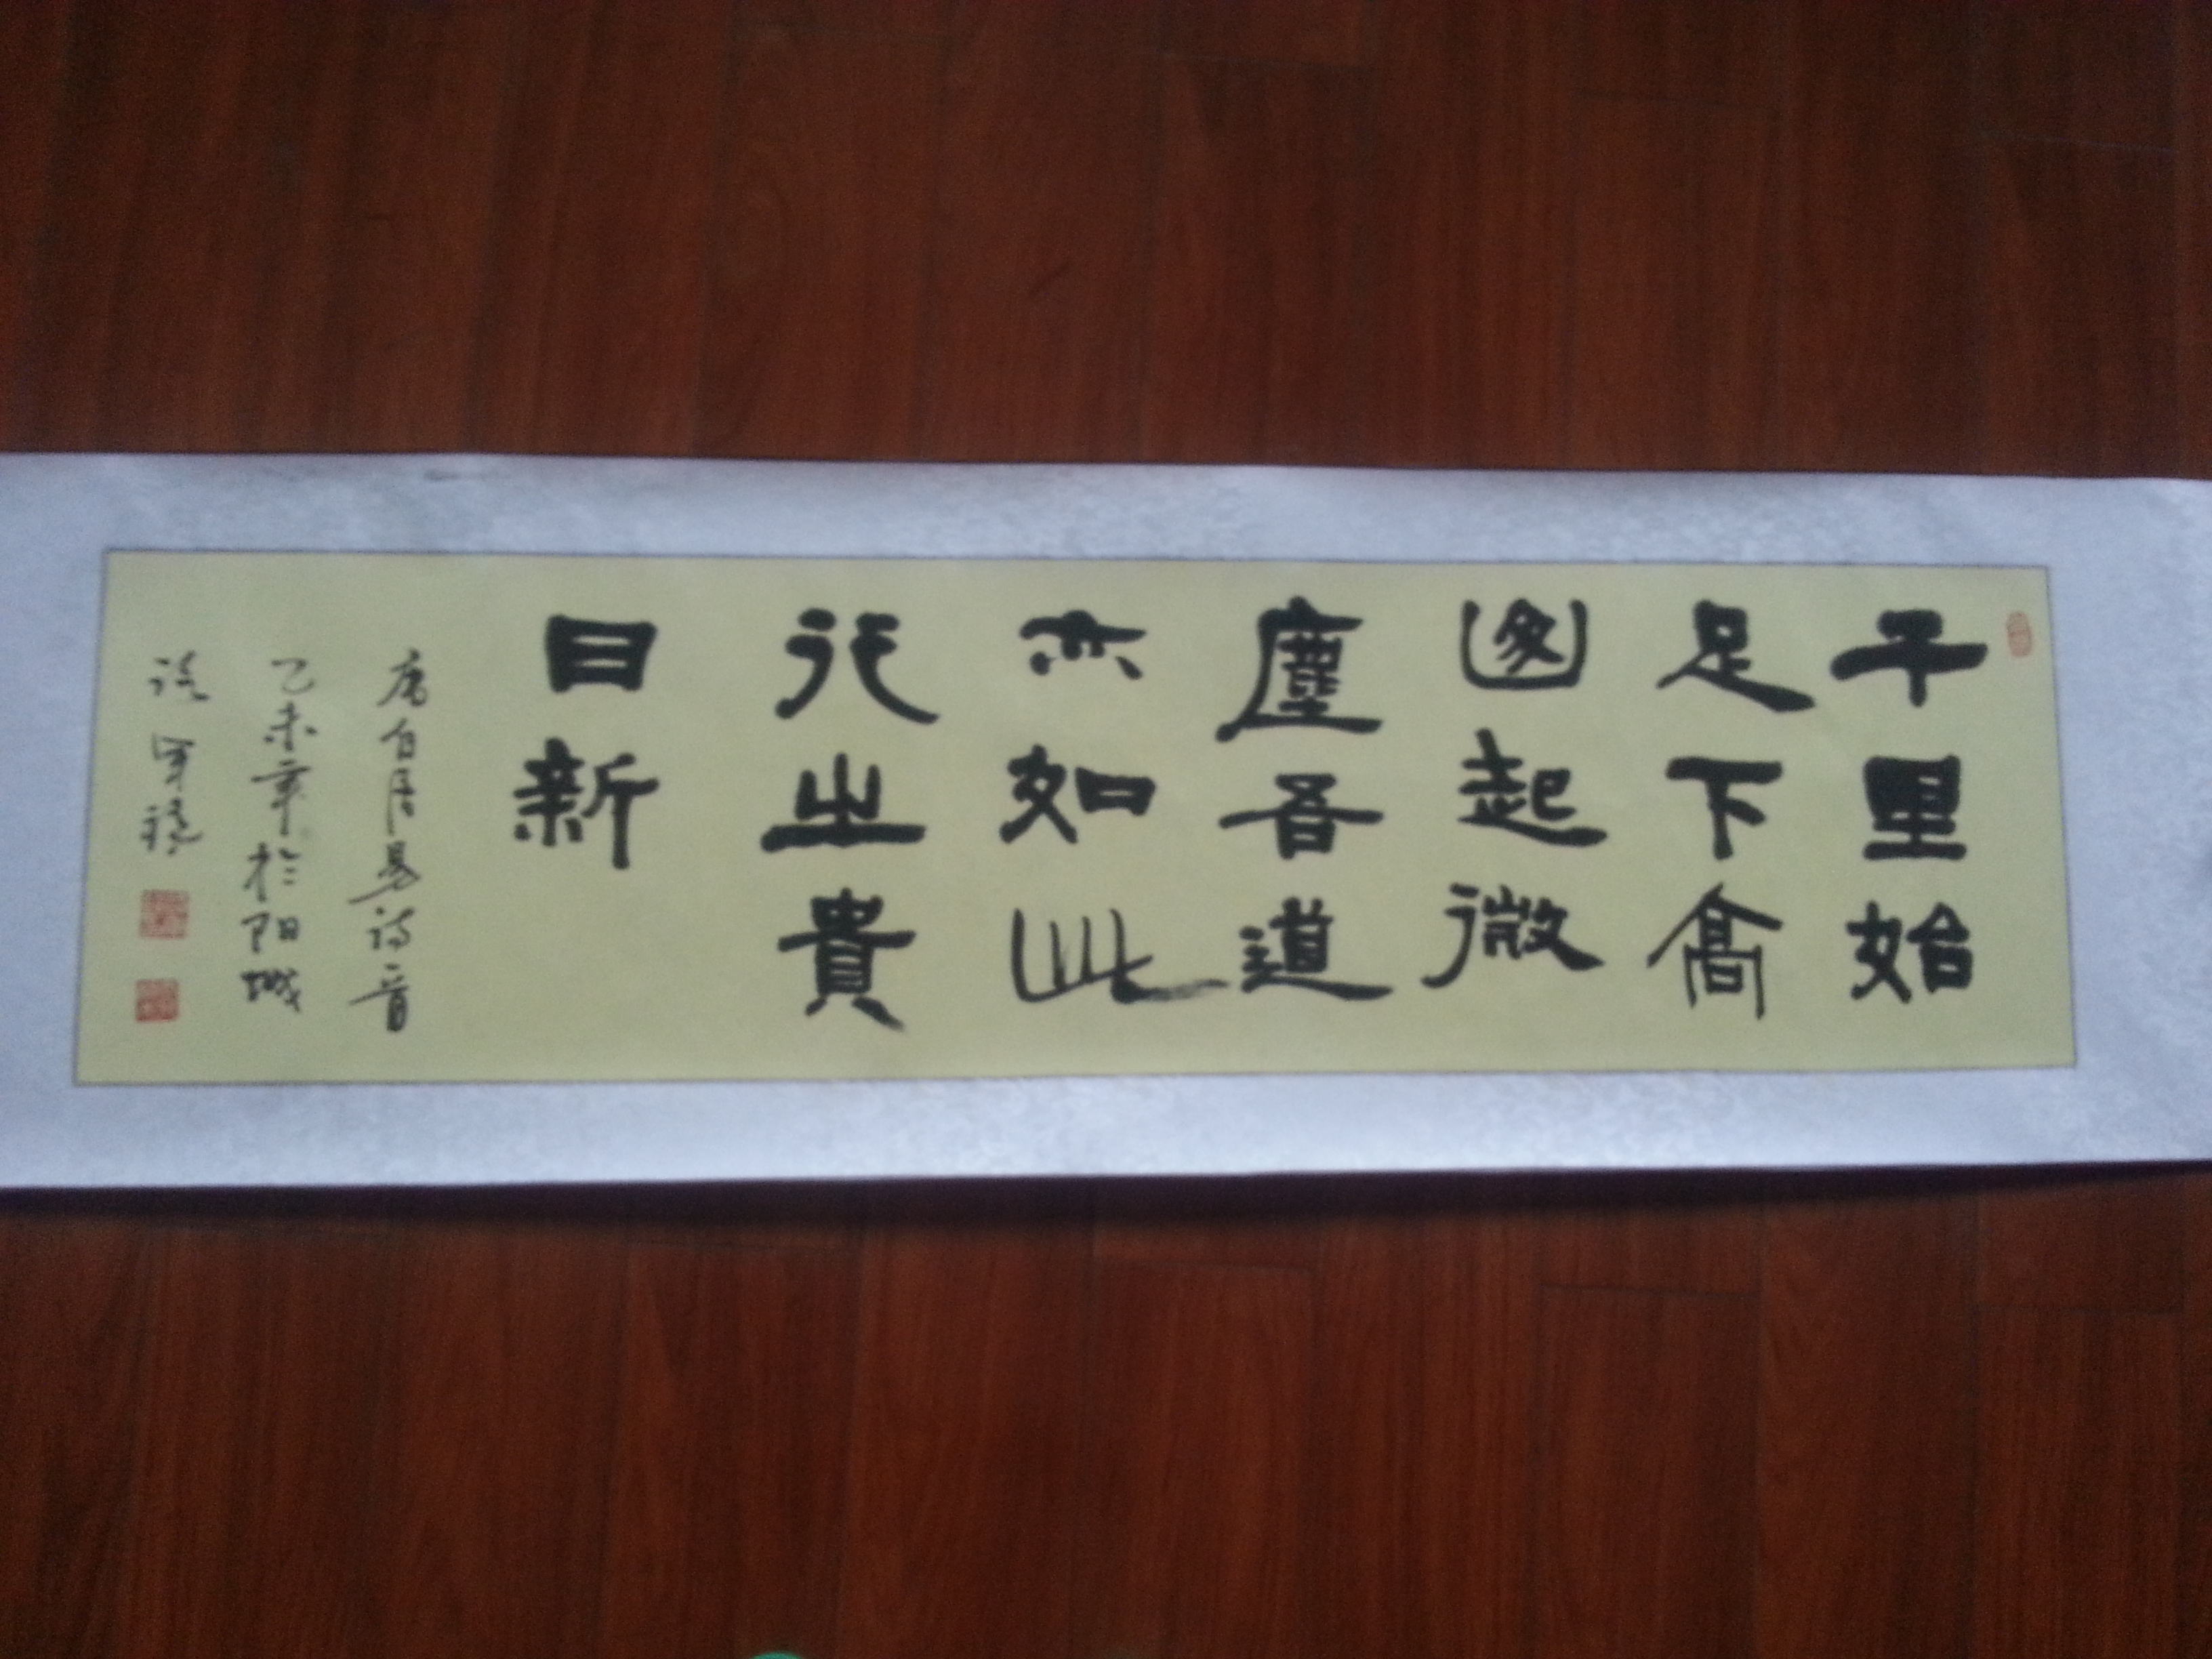 千里始
足下高
山起微
塵吾道
亦如此
行之貴
日新
唐白居易诗一首
乙未年於阳城